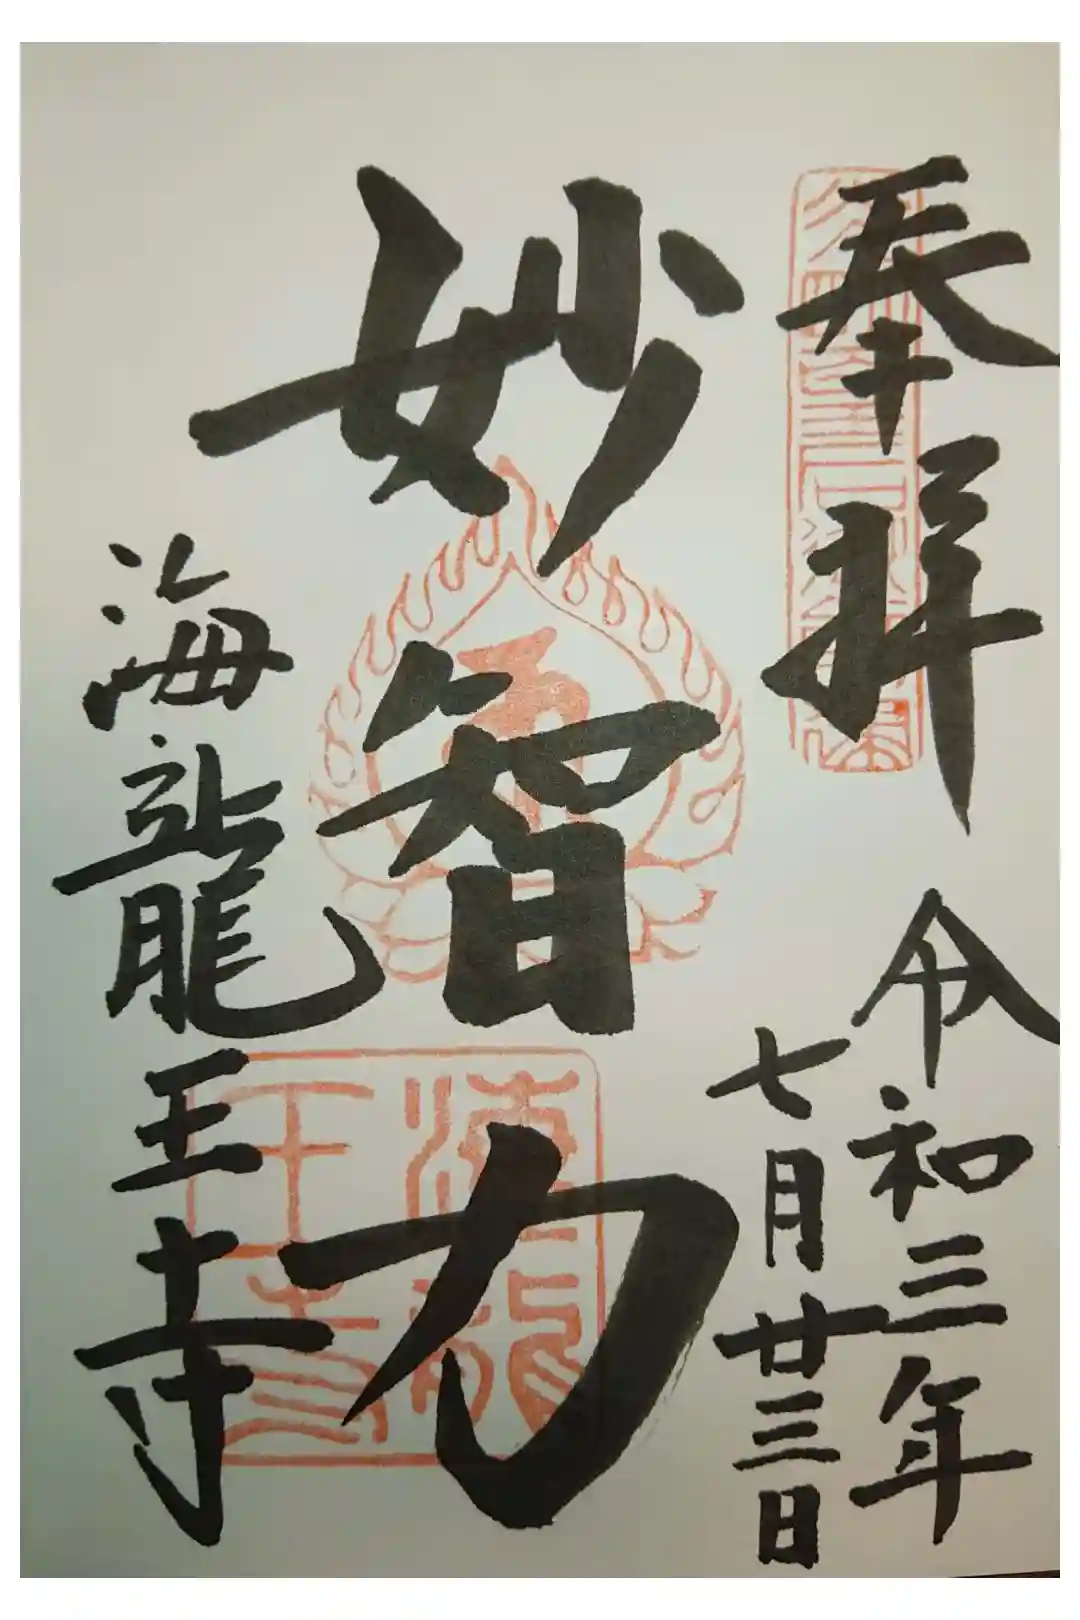 奉拝
令和三年
七月廿三日
妙智力
海龍王寺
海龍
王寺